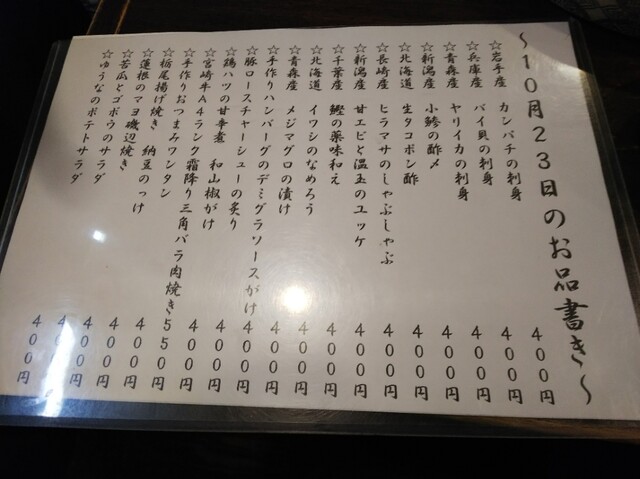 ～１０月２３日のお品書き～
☆岩手産 カンパチの刺身 ４００円
☆兵庫産 バイ貝の刺身 ４００円
☆青森産 ヤリイカの刺身 ４００円
☆新潟産 小鯵の酢〆 ４００円
☆北海道 生タコポン酢 ４００円
☆長崎産 ヒラマサのしゃぶしゃぶ ４００円
☆新潟産 甘エビと温玉のユッケ ４００円
☆千葉産 鰹の薬味和え ４００円
☆北海道 イワシのなめろう ４００円
☆青森産 メジマグロの漬け ４００円
☆手作りハンバーグのデミグラソースがけ ４００円
☆豚ロースチャーシューの炙り ４００円
☆鶏ハツの甘辛煮 和山椒がけ ４００円
☆宮崎牛Ａ４ランク霜降り三角バラ肉焼き５５０円
☆手作りおつまみワンタン ４００円
☆栃尾揚げ焼き 納豆のっけ ４００円
☆蓮根のマヨ磯辺焼き ４００円
☆苦瓜とゴボウのサラダ ４００円
☆ゆうなのポテトサラダ ４００円